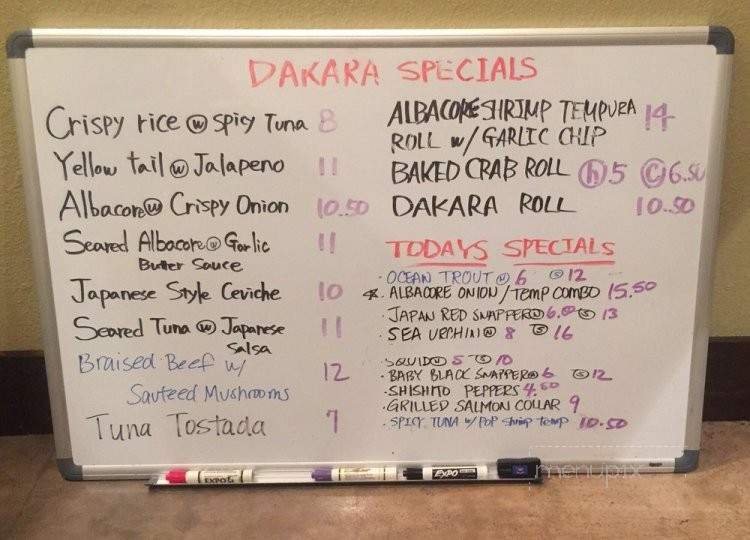 DAKARA SPECIALS
Crispy rice w Spicy Tuna 8
Yellow tail w Jalapeno 11
Albacore w Crispy Onion 10.50
Seared Albacore w Garlic 11
Butter Sauce
Japanese Style Ceviche 10
Seared Tuna w Japanese 11
Salsa
Braised Beef w/ 12
Sauteed Mushrooms
Tuna Tostada 7
ALBACORE SHRIMP TEMPURA 14
ROLL w/ GARLIC CHIP
BAKED CRAB ROLL h 5 C 6.50
DAKARA ROLL 10.50
TODAYS SPECIALS
· OCEAN TROUT 6 S 12
· ALBACORE ONION/TEMP COMBO 15.50
· JAPAN RED SNAPPER 6.50 S 13
· SEA URCHIN 8 S 16
· SQUID 5 S 10
· BABY BLACK SNAPPER 6 S 12
· SHISHITO PEPPERS 4.50
· GRILLED SALMON COLLAR 9
· SPICY TUNA w/ POP shrimp temp 10.50
EXPO
EXPO
menupix